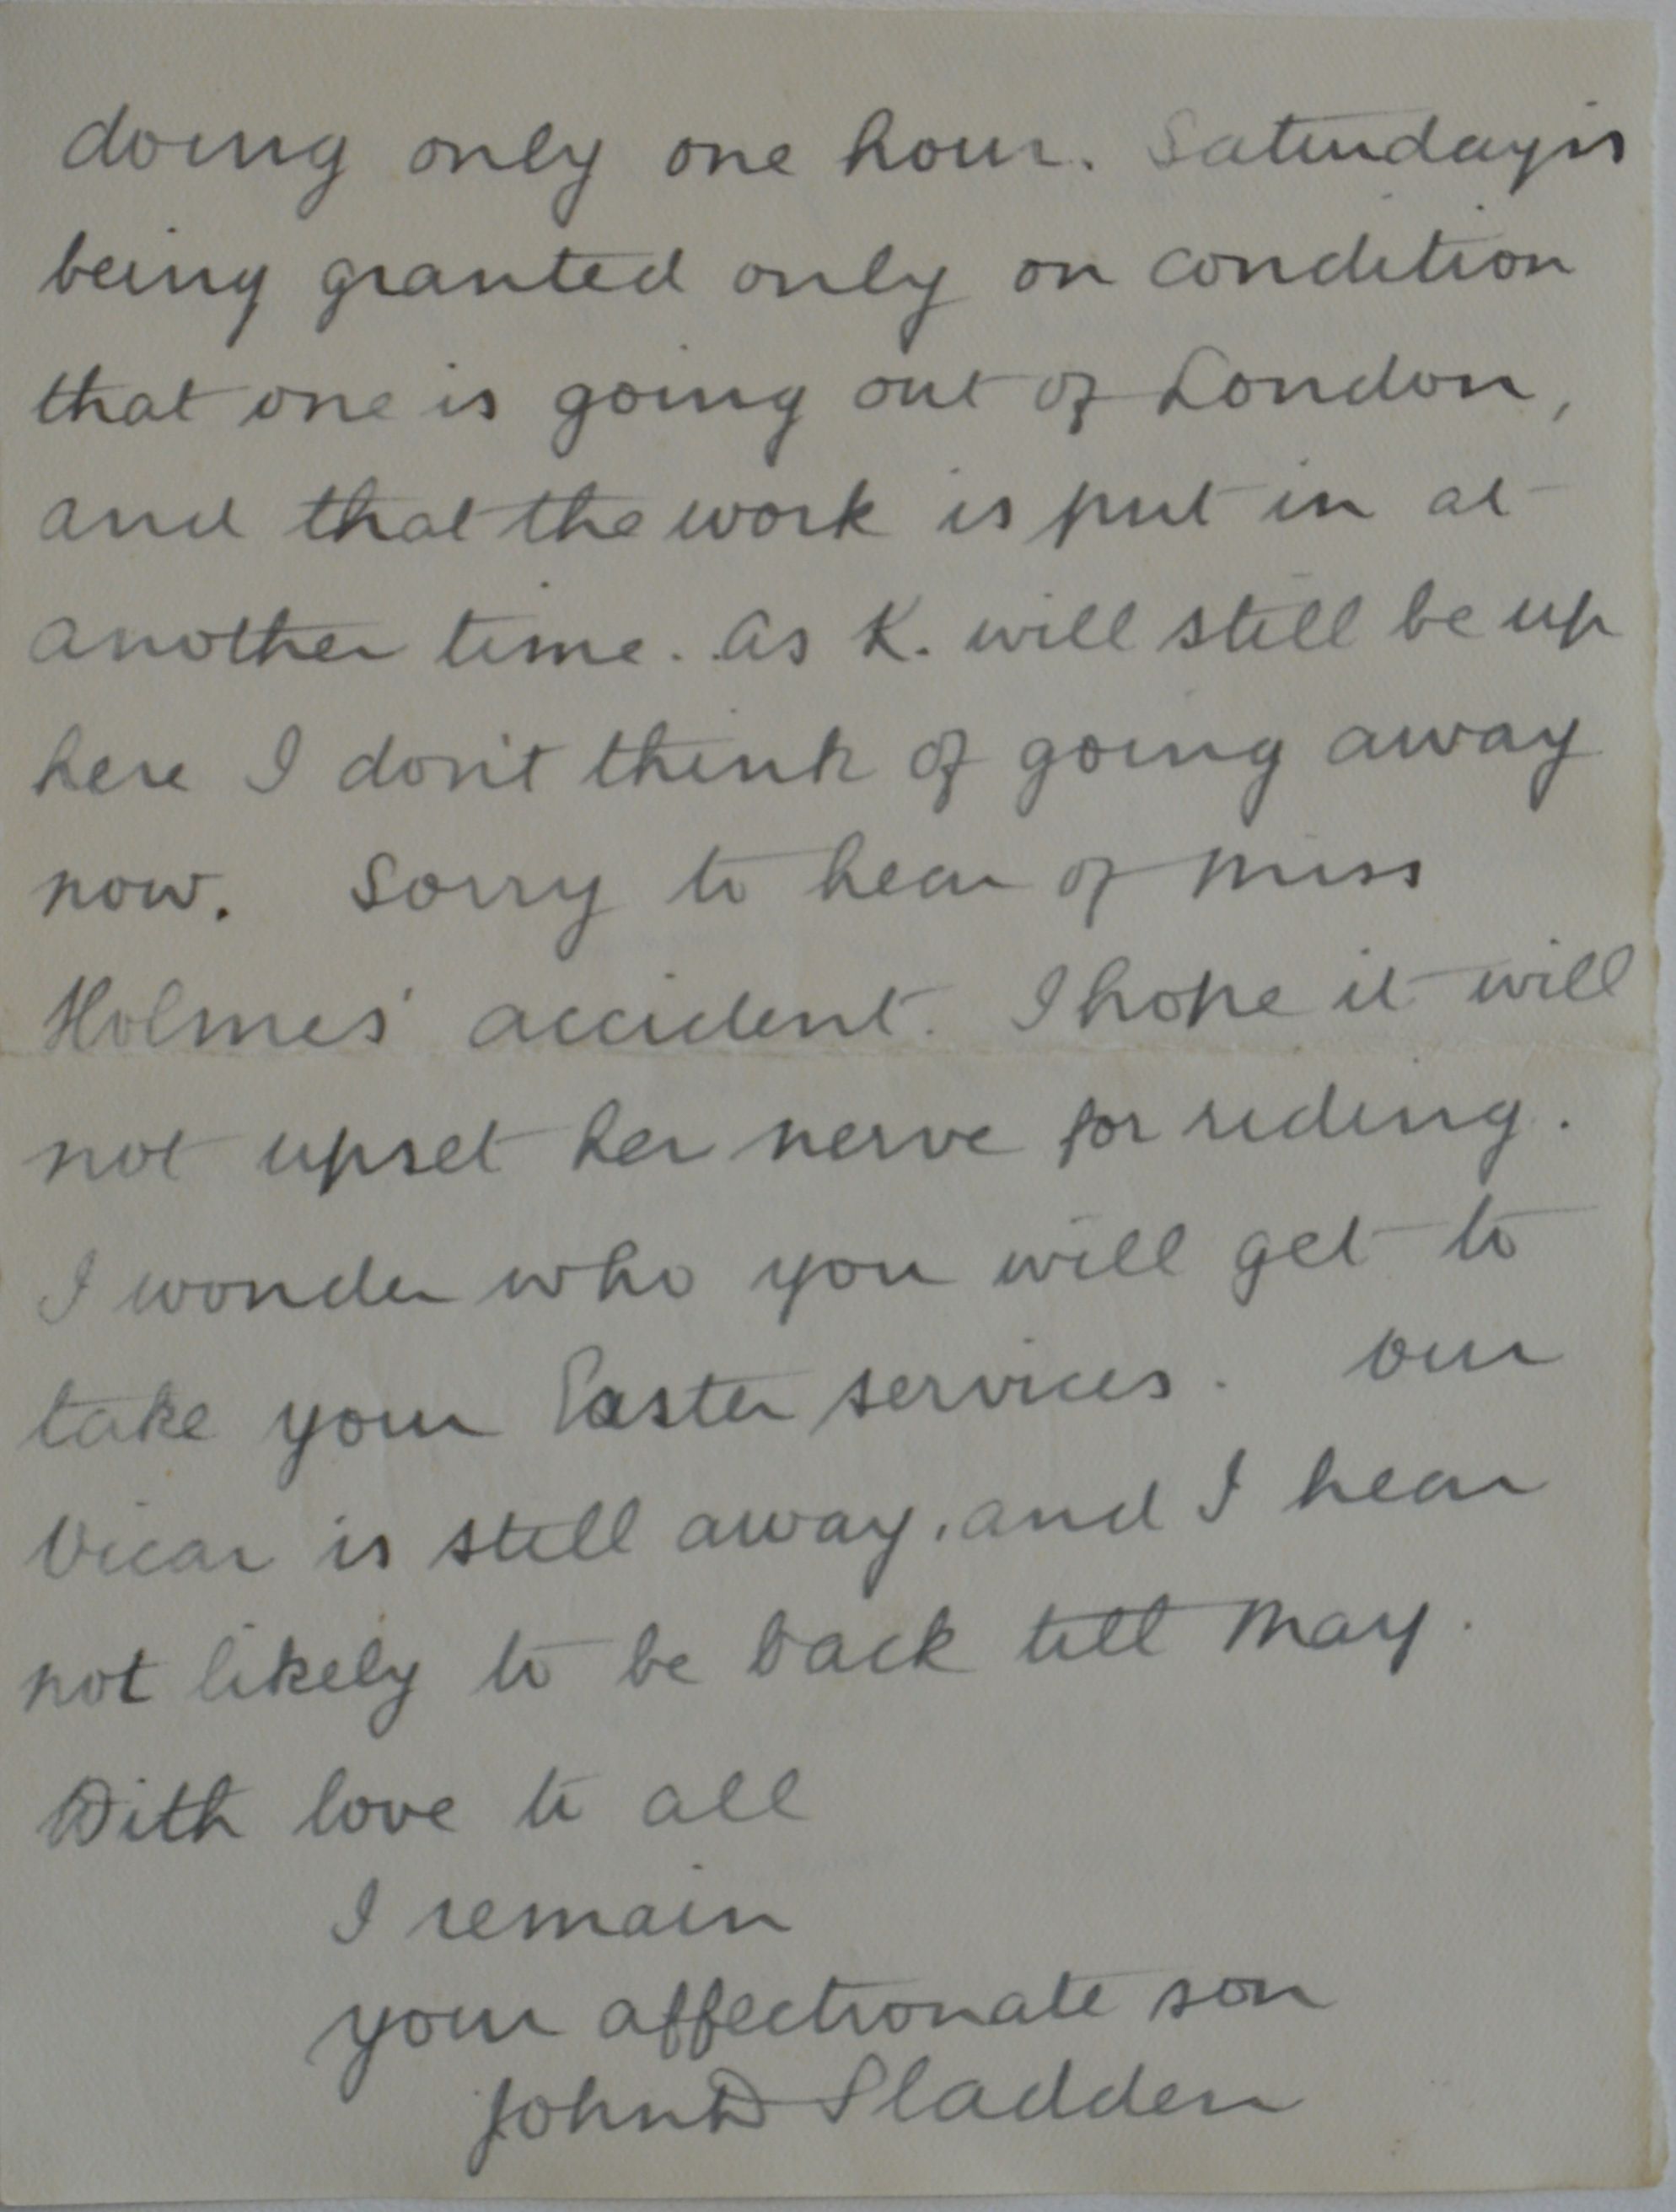 doing only one hour. Saturday is
being granted only on condition
that one is going out of London,
and that the work is put in at
another time. As K. will still be up
here I don't think of going away
now. Sorry to hear of Miss
Holmes' accident. I hope it will
not upset her nerve for riding.
I wonder who you will get to
take your Easter services. Our
Vicar is still away, and I hear
not likely to be back till May.
With love to all
I remain
your affectionate son
John D Sladden